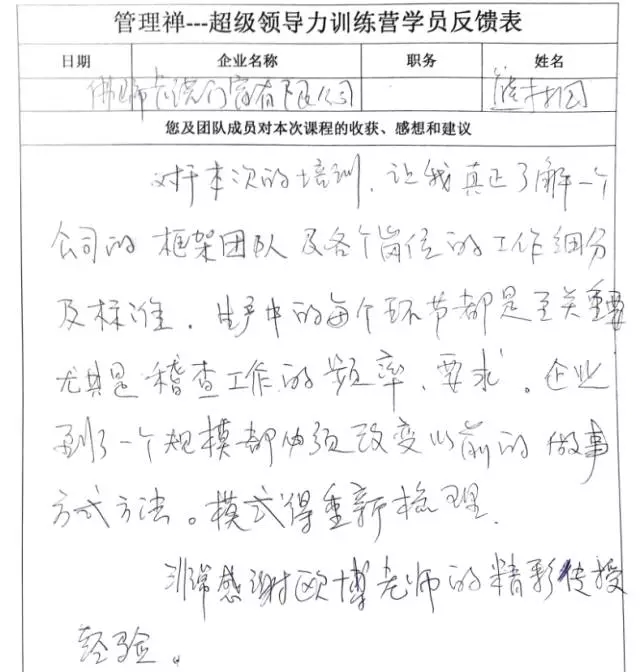 管理禅---超级领导力训练营学员反馈表
日期 企业名称 职务 姓名
有限公司
您及团队成员对本次课程的收获、感想和建议
对于本次的培训，让我真正了解一个
公司的框架团队及各个岗位的工作细分
及标准．生产中的每个环节都是至关重要
尤其是稽查工作的频率、要求。企业
到了一个规模都必须改变以前的做事
方式方法。模式得重新梳理．
非常感谢欧博老师的精彩传授
经验。